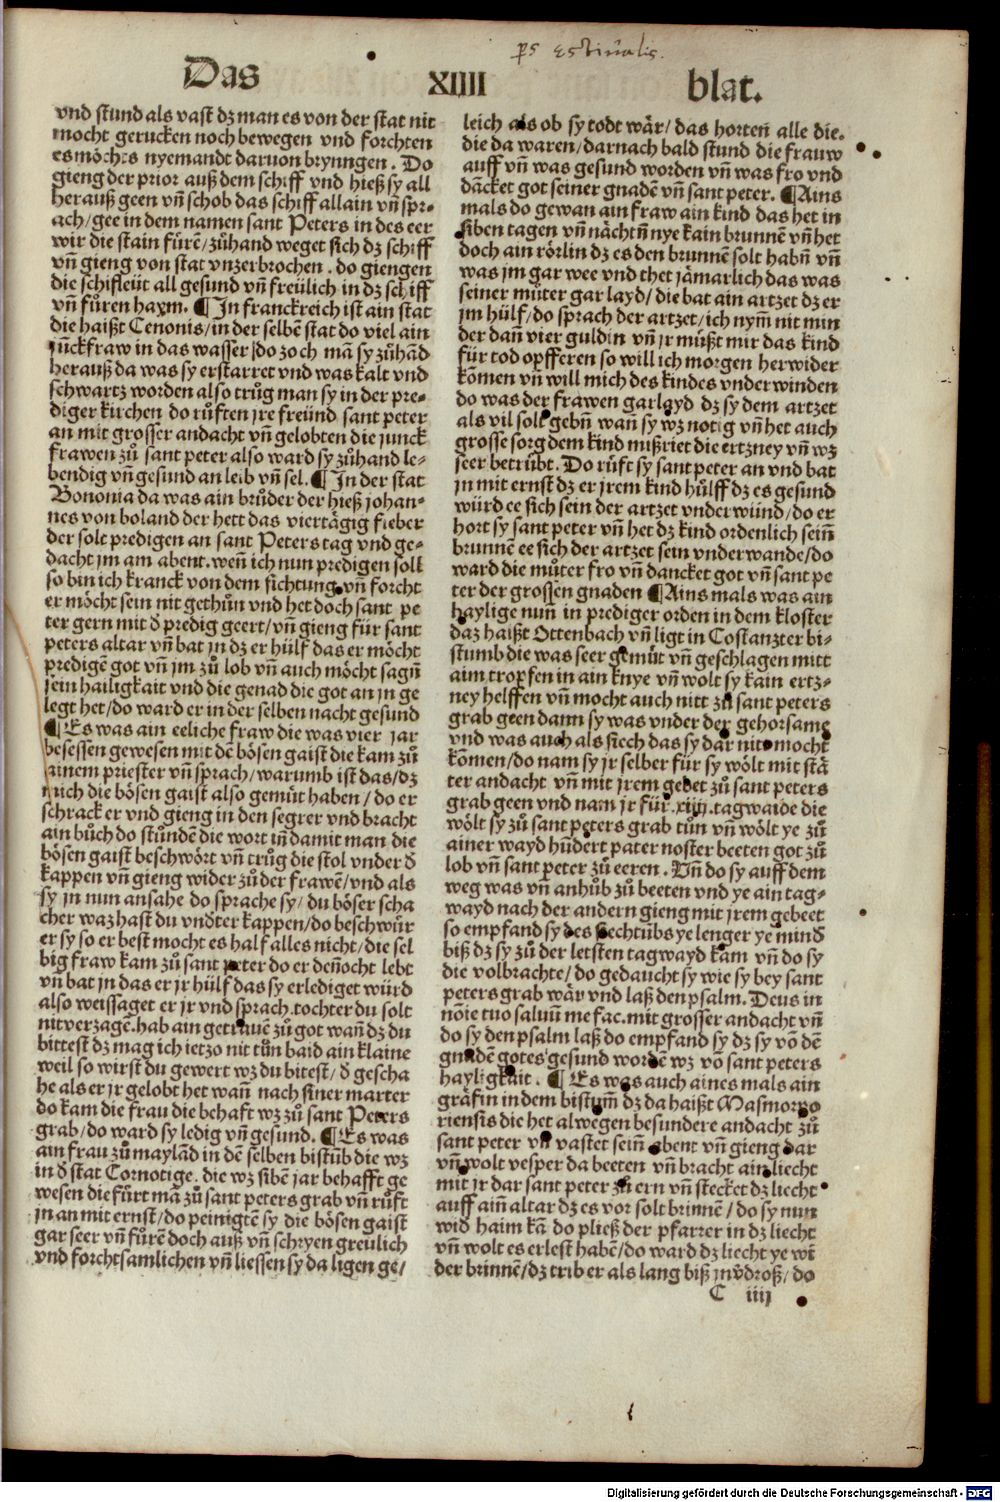 ps estiualis.
Das XIIII blat.
vnd stund als vast dz man es von der stat nit
mocht gerucken noch bewegen vnd forchten
es möchts nyemandt daruon brynngen. Do
gieng der prior auß dem schiff vnd hieß sy all
herauß geen vñ schob das schiff allain vñ spr-
ach/gee in dem namen sant Peters in des eer
wir die stain fürẽ/zůhand weget sich dz schiff
vñ gieng von stat vnzerbrochen. do giengen
die schifleüt all gesund vñ freülich in dz schiff
vñ fůren haym. ¶ In franckreich ist ain stat
die haißt Cenonis/in der selbẽ stat do viel ain
junckfraw in das wasser/do zoch mã sy zůhãd
herauß da was sy erstarret vnd was kalt vnd
schwartz worden also trůg man sy in der pre-
diger kirchen do růften jre freünd sant peter
an mit grosser andacht vñ gelobten die junck
frawen zů sant peter also ward sy zůhand le-
bendig vñ gesund an leib vñ sel. ¶ In der stat
Bononia da was ain brůder der hieß johan-
nes von boland der hett das viertägig fieber
der solt predigen an sant Peters tag vnd ge-
dacht jm am abent. weñ ich nun predigen soll
so bin ich kranck von dem sichtung vñ forcht
er möcht sein nit gethůn vnd het doch sant pe
ter gern mit d̕ predig geert/vñ gieng für sant
peters altar vñ bat in dz er hülf das er möcht
predigẽ got vñ jm zů lob vñ auch möcht sagñ
sein hailigkait vnd die genad die got an jn ge
legt het/do ward er in der selben nacht gesund
¶ Es was ain eeliche fraw die was vier jar
besessen gewesen mit dẽ bösen gaist die kam zů
ainem priester vñ sprach/warumb ist das/dz
mich die bösen gaist also gemüt haben/do er
schrack er vnd gieng in den segrer vnd bracht
ain bůch do stůndẽ die wort iñ damit man die
bösen gaist beschwört vñ trůg die stol vnder d̕
kappen vñ gieng wider zů der frawẽ/vnd als
sy jn nun ansahe do sprache sy/du böser scha
cher waz hast du vnd̕ter kappen/do beschwür
er sy so er best mocht es half alles nicht/die sel
big fraw kam zů sant peter do er deñocht lebt
vñ bat jn das er jr hülf das sy erlediget würd
also weissaget er jr vnd sprach. tochter du solt
nit verzagẽ. hab ain getrauẽ zů got wañ dz du
bittest dz mag ich ietzo nit tůn baid ain klaine
weil so wirst du gewert wz du bitest/d̕ gescha
he als er jr gelobt het wañ nach siner marter
do kam die frau die behaft wz zů sant Peters
grab/do ward sy ledig vñ gesund. ¶ Es was
ain frau zů maylãd in dẽ selben bistůb die wz
in d̕ stat Cornotige. die wz sibẽ jar behafft ge
wesen die fůrt mã zů sant peters grab vñ růft
jn an mit ernst/do peinigtẽ sy die bösen gaist
gar seer vñ fůrẽ doch auß vñ schryen greulich
vnd forchtsamlichen vñ liessen sy da ligen ge/
leich als ob sy todt wär/das horteñ alle die.
die da waren/darnach bald stund die frauw
auff vñ was gesund worden vñ was fro vnd
dãcket got seiner gnadẽ vñ sant peter. ¶ Ains
mals do gewan ain fraw ain kind das het in
siben tagen vñ nächtñ nye kain brunnẽ vñ het
doch ain rörlin dz es den brunnẽ solt habñ vñ
was jm gar wee vnd thet jämarlich das was
seiner můter gar layd/die bat ain artzet dz er
jm hülf/do sprach der artzet/ich nym̃ nit min
der dañ vier guldin vñ jr müßt mir das kind
für tod opfferen so will ich morgen herwider
kõmen vñ will mich des kindes vnderwinden
do was der frawen gar layd dz sy dem artzet
als vil solt gebñ wañ sy wz notig vñ het auch
grosse sorg dem kind mißriet die ertzney vñ wz
seer betrübt. Do růft sy sant peter an vnd bat
jn mit ernst dz er jrem kind hülff dz es gesund
würd ee sich sein der artzet vnderwünd/do er
hort sy sant peter vñ het dz kind ordenlich seiñ
brunnẽ ee sich der artzet sein vnderwande/do
ward die můter fro vñ dancket got vñ sant pe
ter der grossen gnaden ¶ Ains mals was ain
haylige nuñ in prediger orden in dem kloster
daz haißt Ottenbach vñ ligt in Costantzter bi-
stumb die was seer gemüt vñ geschlagen mitt
aim tropfen in ain knye vñ wolt sy kain ertz-
ney helffen vñ mocht auch nitt zů sant peters
grab geen dann sy was vnder der gehorsame
vnd was auch als siech das sy dar nit mocht
kõmen/do nam sy jr selber für sy wölt mit stä
ter andacht vñ mit jrem gebet zů sant peters
grab geen vnd nam jr für .xiiij. tagwaide die
wölt sy zů sant peters grab tůn vñ wölt ye zů
ainer wayd hũdert pater noster beeten got zů
lob vñ sant peter zů eeren. Vñ do sy auff dem
weg was vñ anhůb zů beeten vnd ye ain tag-
wayd nach der andern gieng mit jrem gebeet
so empfand sy des siechtũbs ye lenger ye mind̕
biß dz sy zů der letsten tagwayd kam vñ do sy
die volbrachte/do gedaucht sy wie sy bey sant
peters grab wär vnd laß den psalm. Deus in
nõie tuo saluũ me fac. mit grosser andacht vñ
do sy den psalm laß do empfand sy dz sy võ dẽ
gnadẽ gotes gesund wordẽ wz võ sant peters
hayligkait. ¶ Es was auch aines mals ain
gräfin in dem bistum̃ dz da haißt Masmorpo
riensis die het alwegen besundere andacht zů
sant peter vñ vastet seiñ abent vñ gieng dar
vñ wolt vesper da beeten vñ bracht ain liecht
mit jr dar sant peter zů ern vñ stecket dz liecht
auff aiñ altar dz es vor solt brinnẽ/do sy nun
wid̕ haim kã do pließ der pfarrer in dz liecht
vñ wolt es erlest habẽ/do ward dz liecht ye wi
der brinnẽ/dz trib er als lang biß jn v̕droß/do
C iiij
Digitalisierung gefördert durch die Deutsche Forschungsgemeinschaft - DFG